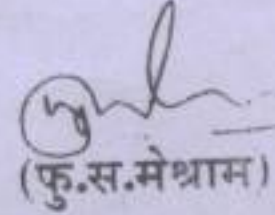 (फु.स.मेश्राम)